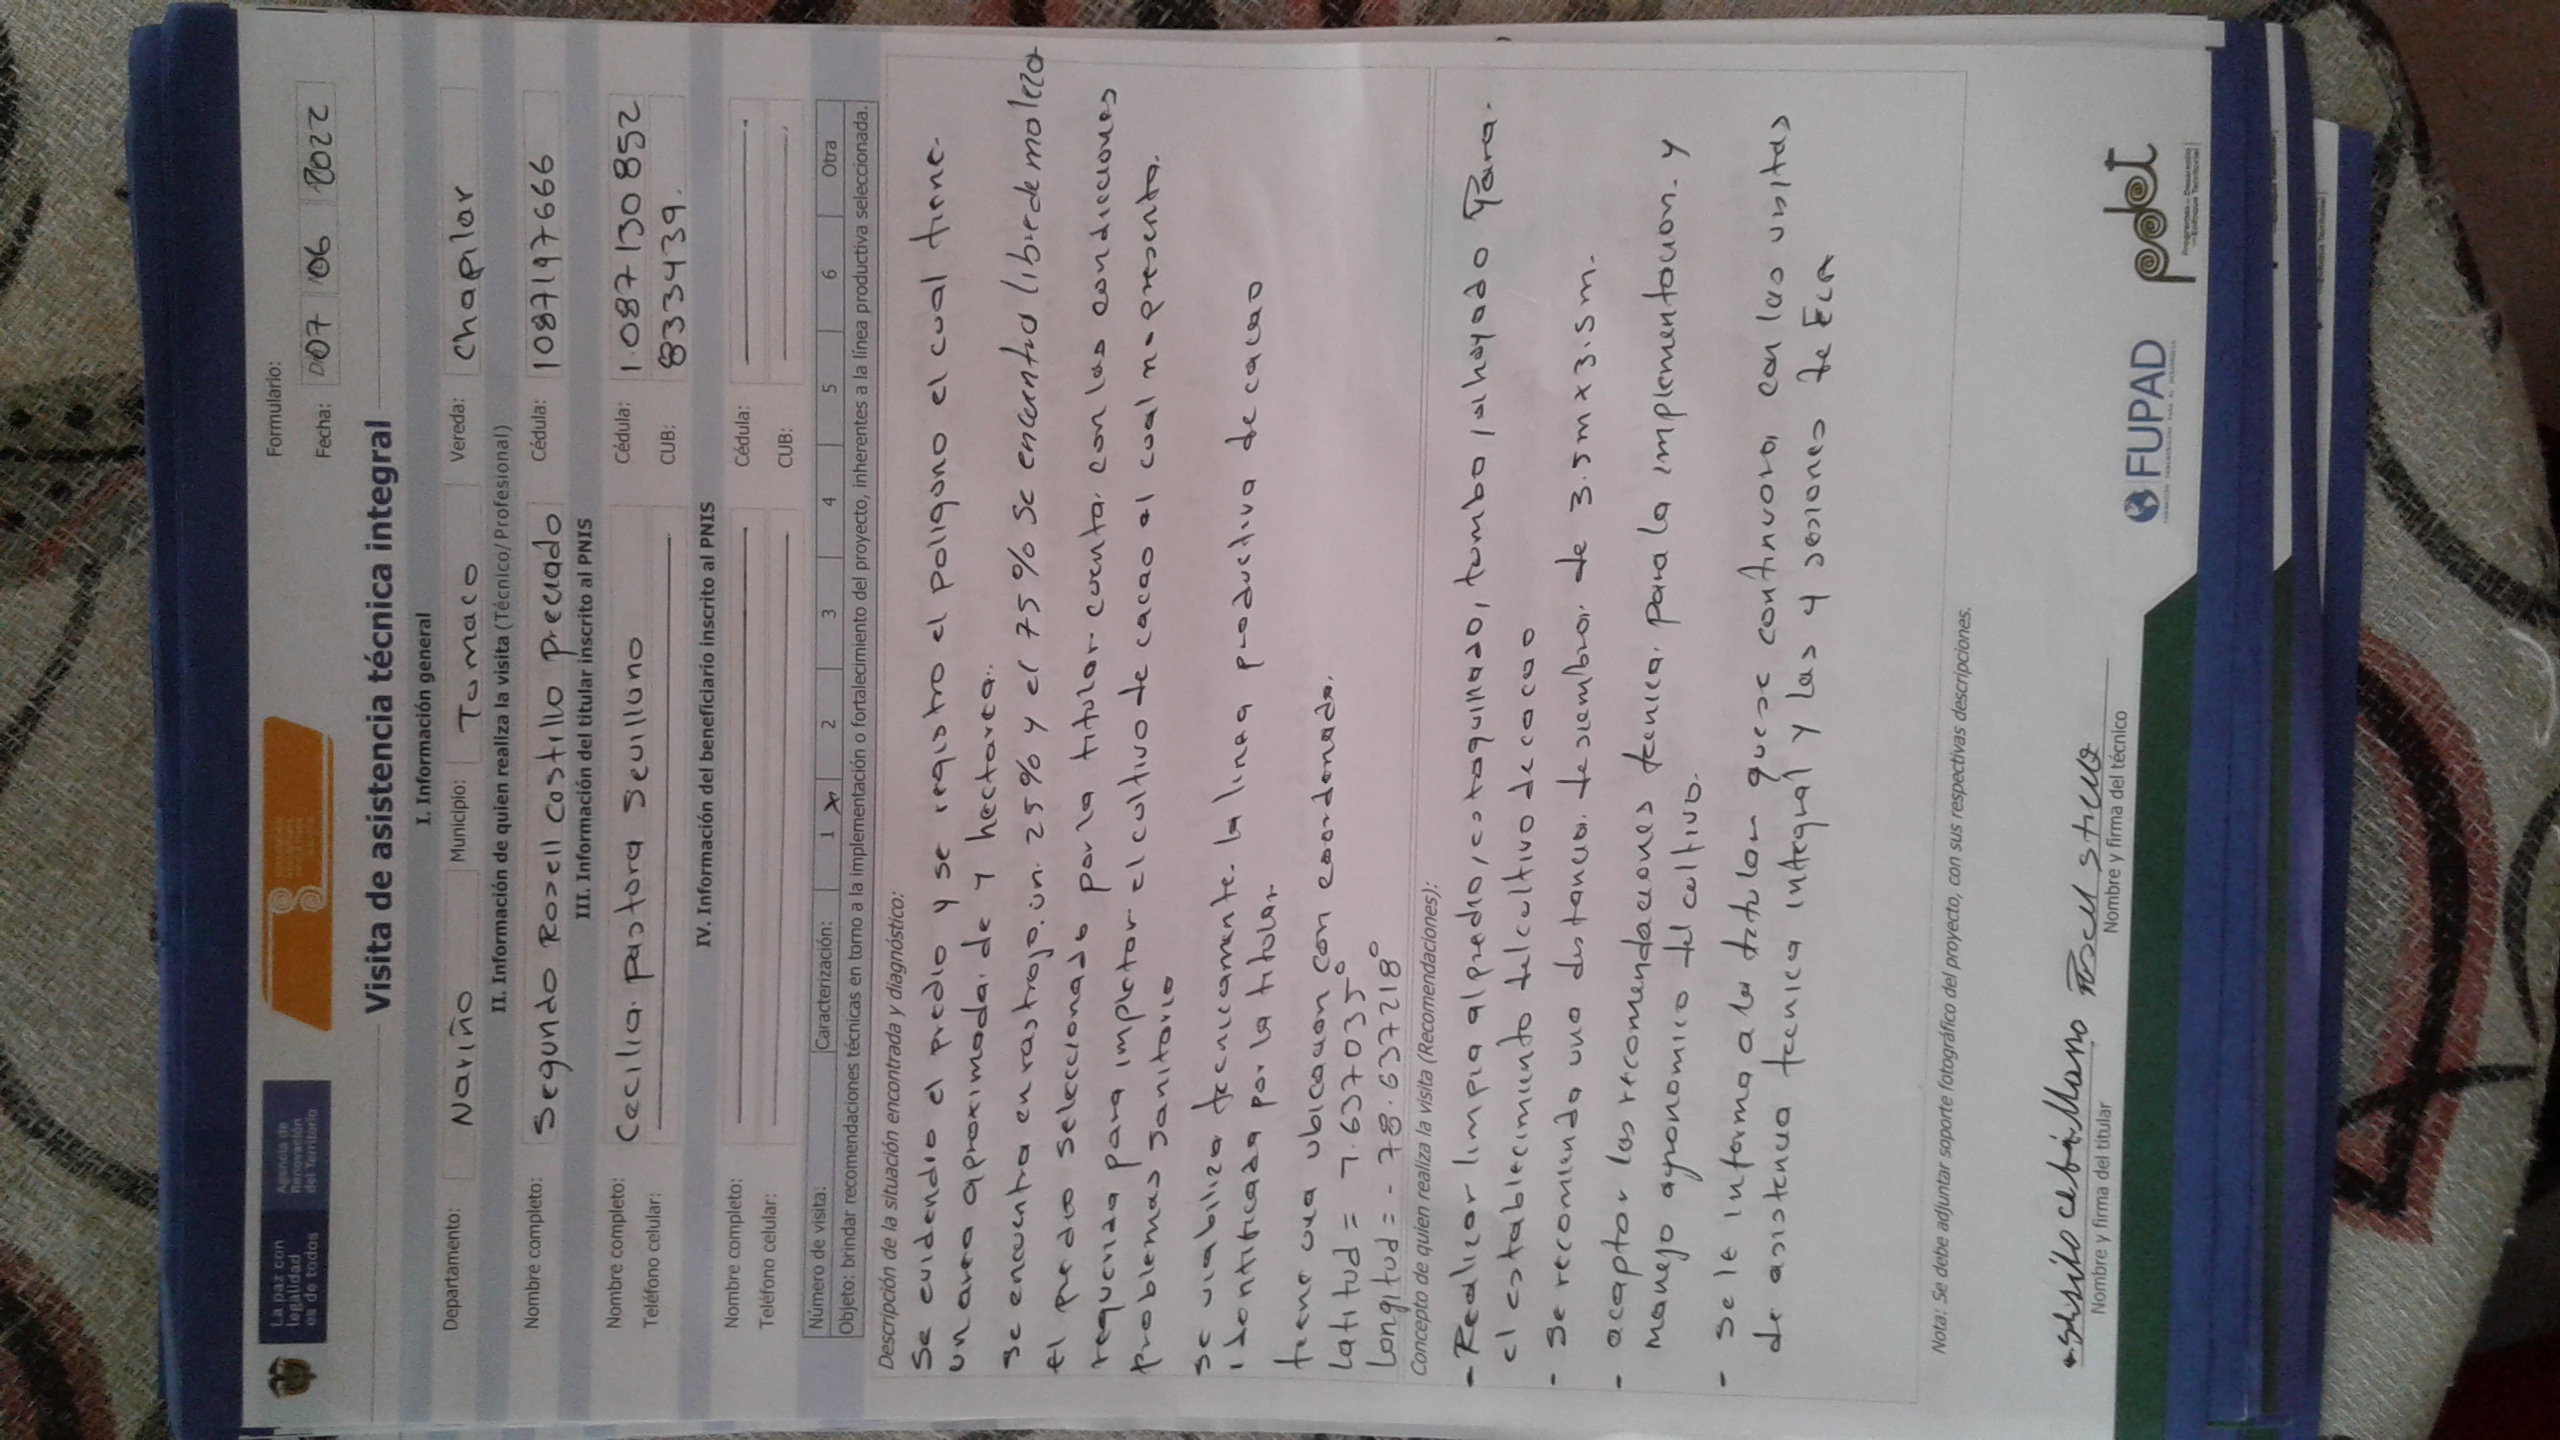 La paz con
legalidad
es de todos
Agencia de
Renovación
del Territorio
Formulario:
Fecha: 007 06 2022
Visita de asistencia técnica integral
I. Información general
Departamento: Nariño Municipio: Tumaco Vereda: Chapilar
II. Información de quien realiza la visita (Técnico/Profesional)
Nombre completo: Segundo Rosell Costillo Preciado Cédula: 1087197666
III. Información del titular inscrito al PNIS
Nombre completo: Cecilia Pastora Sevillano Cédula: 1.087130852
Teléfono celular: CUB: 8334439.
IV. Información del beneficiario inscrito al PNIS
Nombre completo: Cédula:
Teléfono celular: CUB:
Número de visita: Caracterización: 1 X 2 3 4 5 6 Otra
Objeto: brindar recomendaciones técnicas en torno a la implementación o fortalecimiento del proyecto, inherentes a la línea productiva seleccionada.
Descripción de la situación encontrada y diagnóstico:
Se evidendio el predio y se registro el poligono el cual tiene
un area aproximada de 4 hectarea.
se encuentra en rastrojo. un 25% y el 75% se encuentra libre de maleza
el predio seleccionado por la titular cuenta con las condiciones
requerida para impletar el cultivo de cacao el cual no presenta.
problemas sanitario
se viabiliza tecnicamente la linea productiva de cacao
identificada por la titular
tiene una ubicacion con coordenada.
Latitud = 1.637035°
Longitud = - 78.637218°
Concepto de quien realiza la visita (Recomendaciones):
- Realizar limpia al predio, estaquillado, tumba, ahoyado Para.
el establecimiento del cultivo de cacao
- Se recomienda una distancia de siembra de 3.5m x 3.5m.
- acaptar las recomendaciones tecnica para la implementacion. y
manejo agronomico del cultivo.
- Se le informa a la titular que se continuara con las visitas
de asistencia tecnica integral y las 4 sesiones de ECA
Nota: Se debe adjuntar soporte fotográfico del proyecto, con sus respectivas descripciones.
Nombre y firma del titular
Nombre y firma del técnico
FUPAD
pdet
Programas de Desarrollo
con Enfoque Territorial